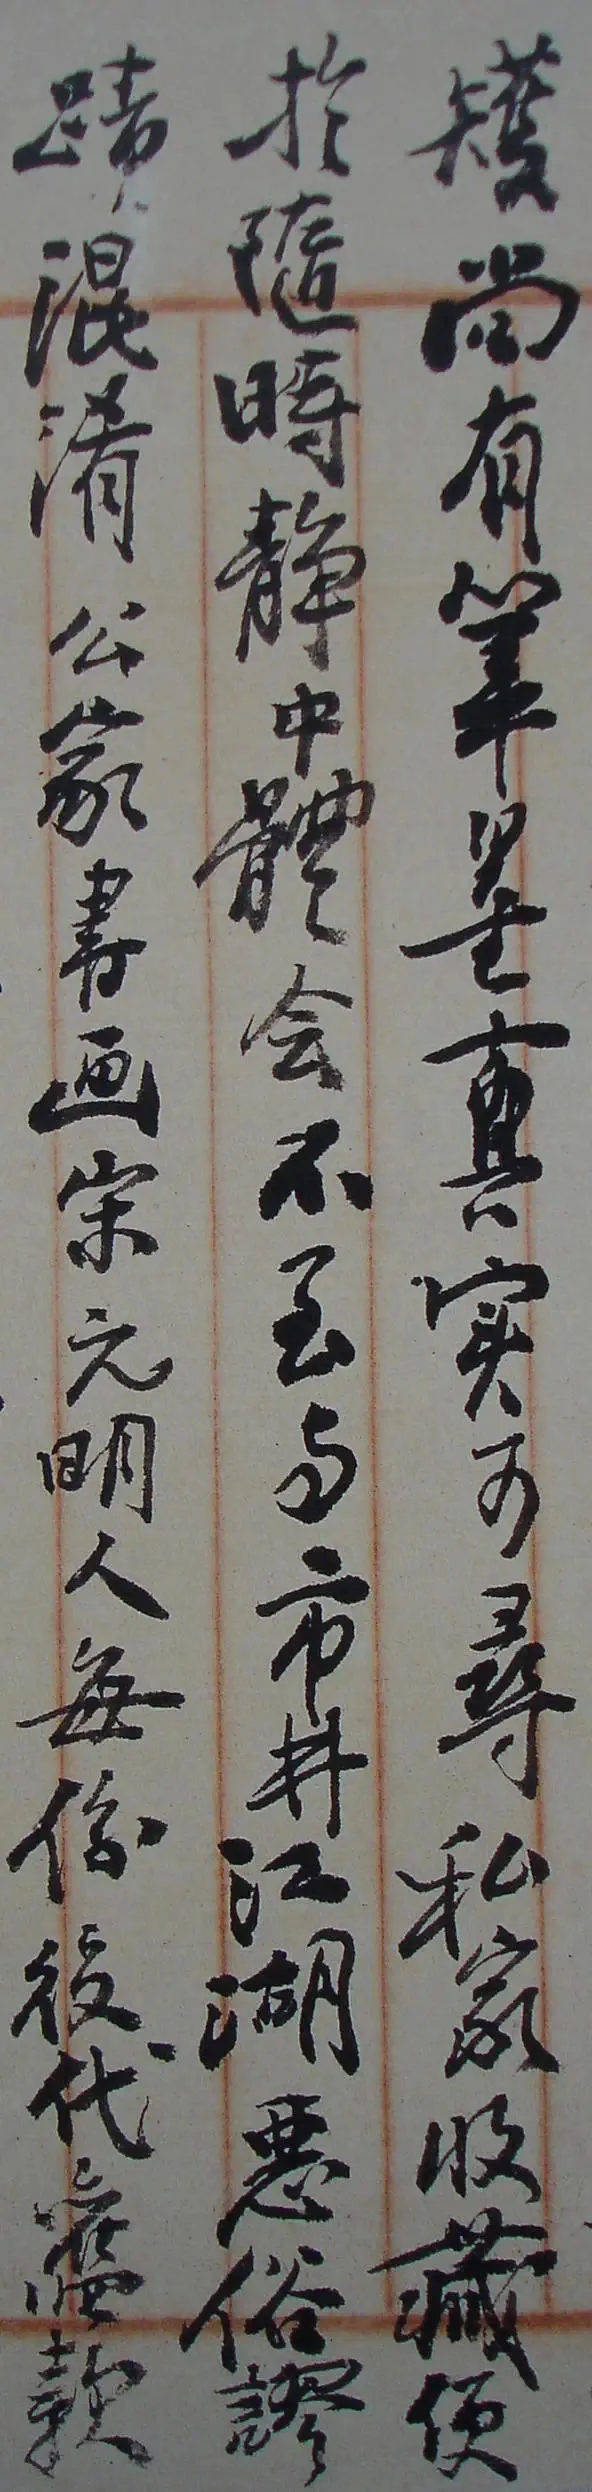 矱尚有筆墨真实可尋私家收藏便
於隨時静中體会不至与市井江湖悪俗謬
蹟混淆公家書画宋元明人每係後代贗款